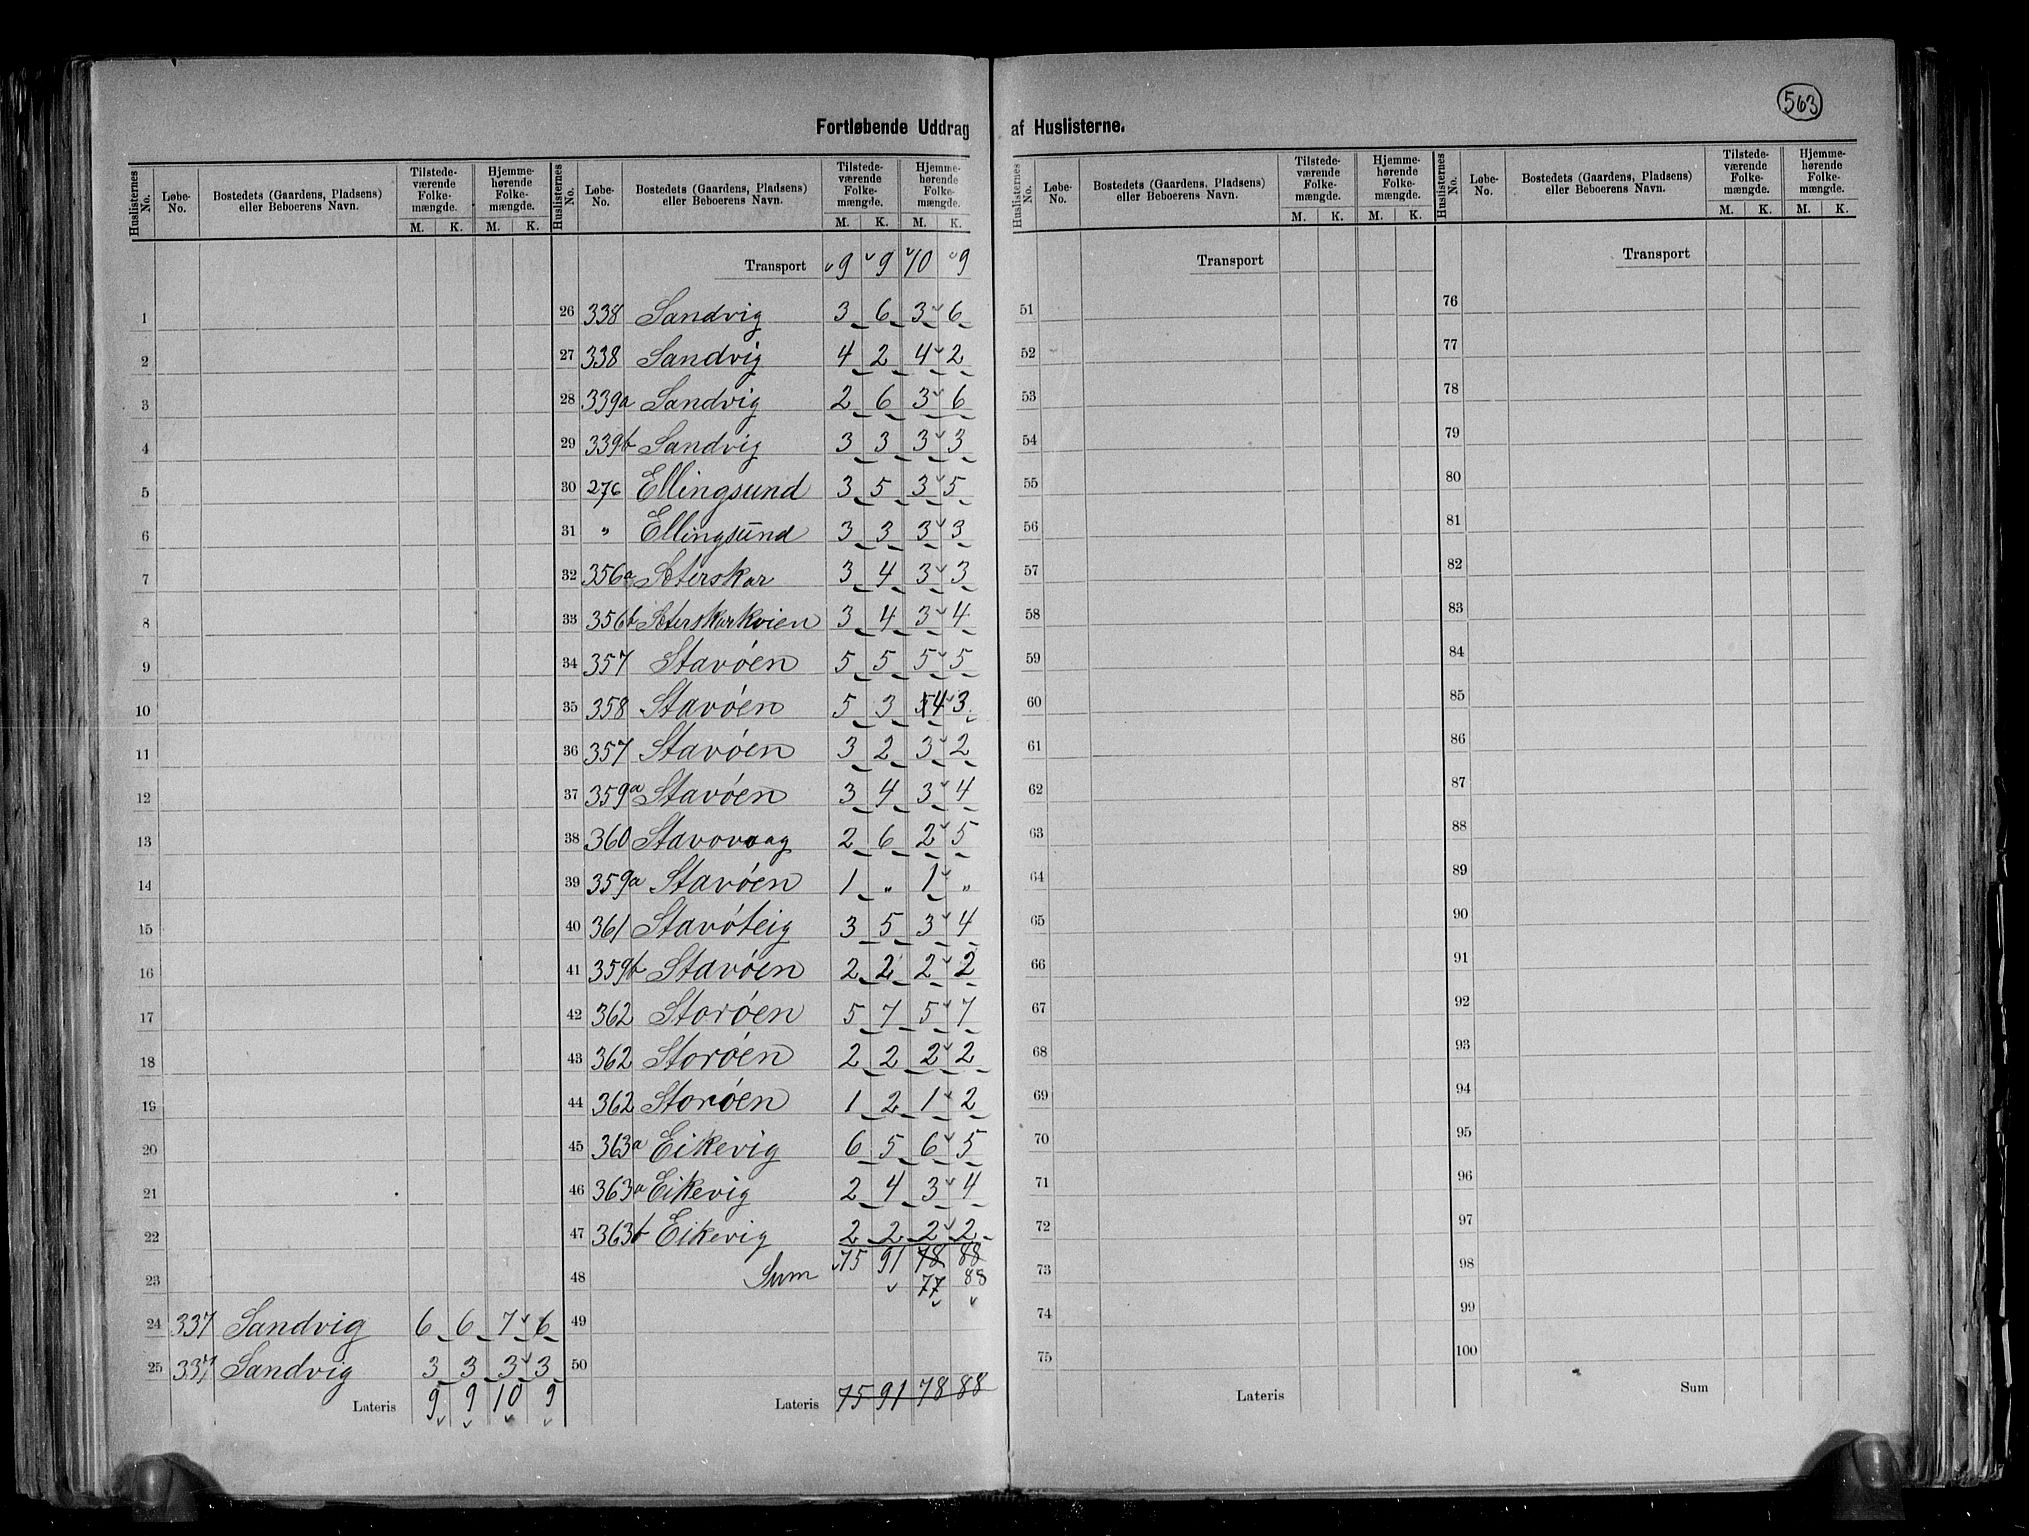 563
Fortløbende Uddrag af Huslisterne.
Huslisternes No. | Løbe-No. | Bostedets (Gaardens, Pladsens) eller Beboerens Navn. | Tilstedeværende Folkemængde. M. K. | Hjemmehørende Folkemængde. M. K.
1
2
3
4
5
6
7
8
9
10
11
12
13
14
15
16
17
18
19
20
21
22
23
24 337 Sandvig 6 6 7 6
25 337 Sandvig 3 3 3 3
Lateris 9 9 10 9
Huslisternes No. | Løbe-No. | Bostedets (Gaardens, Pladsens) eller Beboerens Navn. | Tilstedeværende Folkemængde. M. K. | Hjemmehørende Folkemængde. M. K.
Transport 9 9 10 9
26 338 Sandvig 3 6 3 6
27 338 Sandvig 4 2 4 2
28 339a Sandvig 2 6 3 6
29 339b Sandvig 3 3 3 3
30 276 Ellingsund 3 5 3 5
31 " Ellingsund 3 3 3 3
32 356a Sæterskar 3 4 3 3
33 356b Sæterskarkvien 3 4 3 4
34 357 Stavöen 5 5 5 5
35 358 Stavöen 5 3 5 4 3
36 357 Stavöen 3 2 3 2
37 359a Stavöen 3 4 3 4
38 360 Stavovaag 2 6 2 5
39 359a Stavöen 1 " 1 "
40 361 Stavöteig 3 5 3 4
41 359b Stavöen 2 2 2 2
42 362 Storöen 5 7 5 7
43 362 Storöen 2 2 2 2
44 362 Storöen 1 2 1 2
45 363a Eikevig 6 5 6 5
46 363a Eikevig 2 4 3 4
47 363b Eikevig 2 2 2 2
75 91 78 88
48 Sum 77 88
49
50
Lateris 75 91 78 88
Huslisternes No. | Løbe-No. | Bostedets (Gaardens, Pladsens) eller Beboerens Navn. | Tilstedeværende Folkemængde. M. K. | Hjemmehørende Folkemængde. M. K.
Transport
51
52
53
54
55
56
57
58
59
60
61
62
63
64
65
66
67
68
69
70
71
72
73
74
75
Lateris
Huslisternes No. | Løbe-No. | Bostedets (Gaardens, Pladsens) eller Beboerens Navn. | Tilstedeværende Folkemængde. M. K. | Hjemmehørende Folkemængde. M. K.
Transport
76
77
78
79
80
81
82
83
84
85
86
87
88
89
90
91
92
93
94
95
96
97
98
99
100
Sum